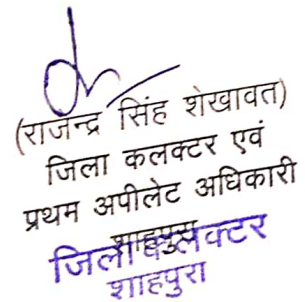 (राजेन्द्र सिंह शेखावत)
जिला कलक्टर एवं
प्रथम अपीलेट अधिकारी
शाहपुरा
जिला कलक्टर
शाहपुरा